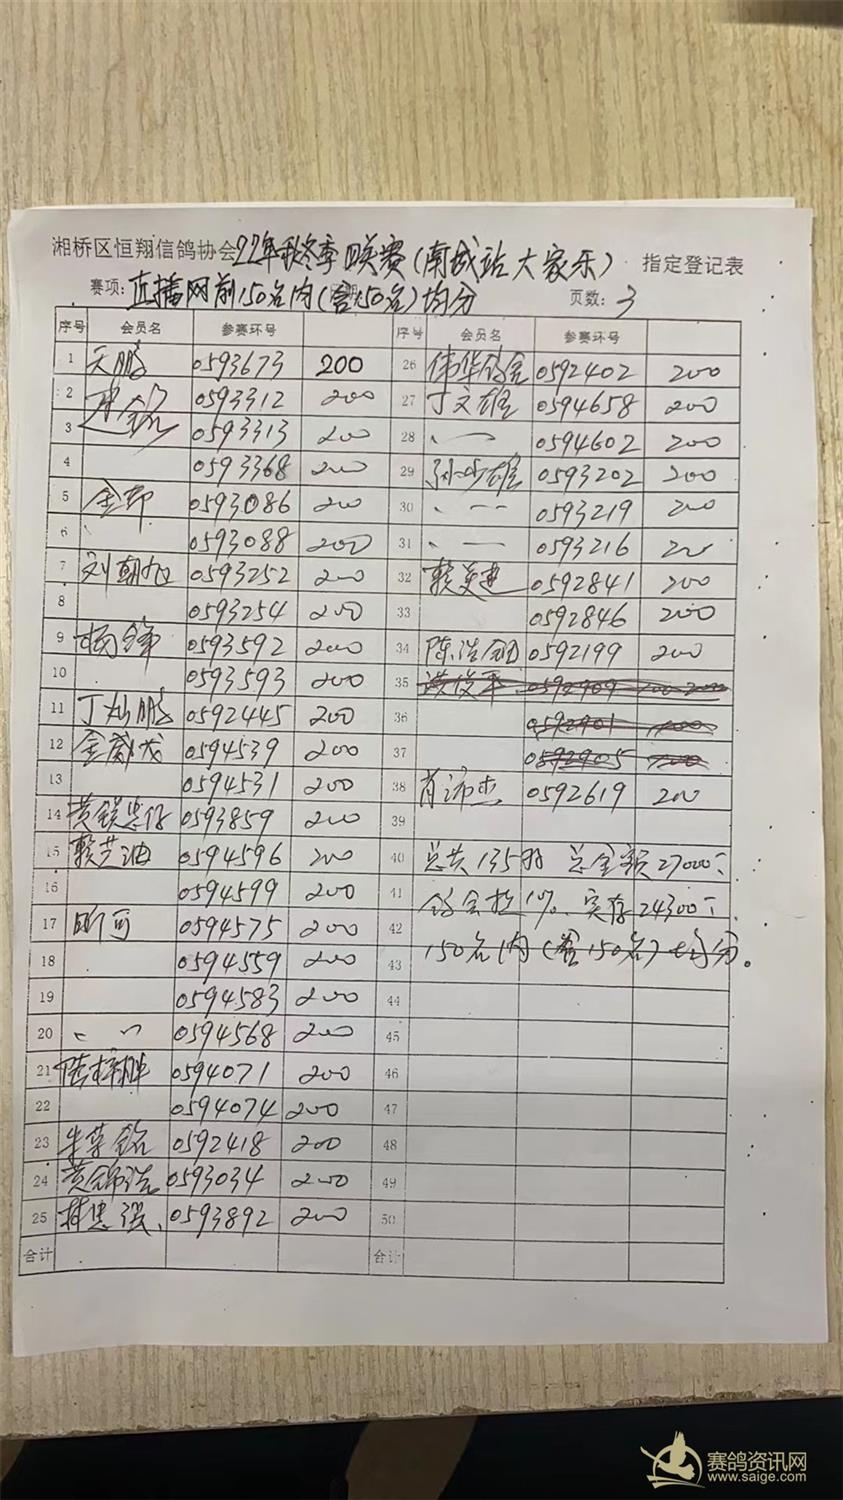 湘桥区恒翔信鸽协会22年秋冬季联赛(南城站大家乐) 指定登记表
赛项:直播网前150名内(含150名)均分 页数:3
序号 会员名 参赛环号 序号 会员名 参赛环号
1 天鹏 0593673 200 26 伟华鸽舍 0592402 200
2 建铭 0593312 200 27 丁文雄 0594658 200
3 0593313 200 28 0594602 200
4 0593368 200 29 孙少雄 0593202 200
5 0593086 200 30 0593219 200
6 0593088 200 31 0593216 200
7 刘朝旭 0593252 200 32 赖英建 0592841 200
8 0593254 200 33 0592846 200
9 杨锋 0593592 200 34 陈浩 0592199 200
10 0593593 200 35 洪俊平 0592909 200
11 丁灿鹏 0592445 200 36 0592901 200
12 金威龙 0594539 200 37 0592905 200
13 0594531 200 38 肖沛杰 0592619 200
14 黄镇忠仔 0593859 200 39
15 赖芝迪 0594596 200 40 总共135羽 总金额27000
16 0594599 200 41 鸽会抽1%.实存24300
17 昕可 0594575 200 42
18 0594559 200 43 150名内(含150名)均分。
19 0594583 200 44
20 0594568 200 45
21 陆梓胜 0594071 200 46
22 0594074 200 47
23 朱萃铭 0592418 200 48
24 黄锦浩 0593034 200 49
25 林忠强、 0593892 200 50
合计 合计
赛鸽资讯网
www.saige.com